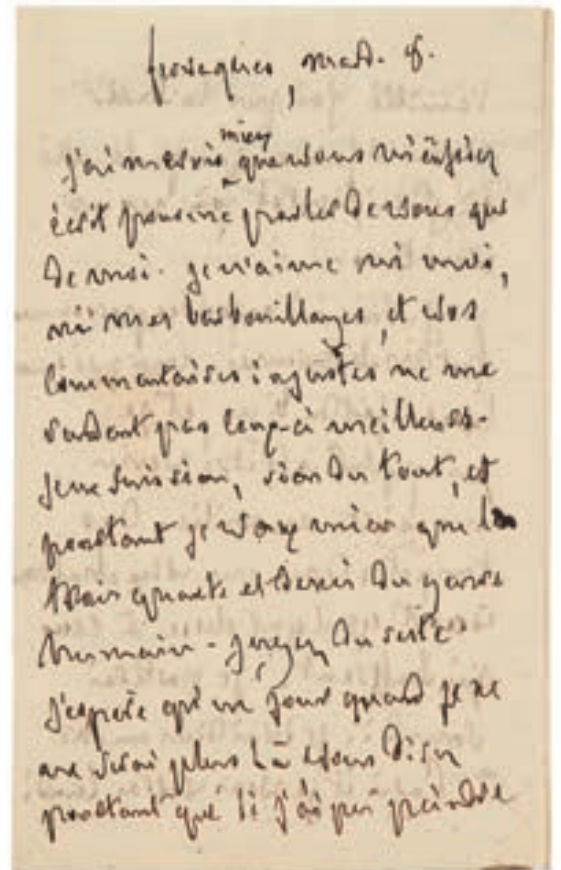 J'aimerais mieux que vous m'eussiez
écrit pour me parler de vous que
de moi. Je n'aime ni moi,
ni mes barbouillages, et vos
commentaires injustes ne me
rendent pas ceux-ci meilleurs.
Je ne suis rien, rien du tout, et
pourtant je vaux mieux que les
trois quarts et demi du genre
humain - Jugez du reste.
J'espère qu'un jour quand je ne
serai plus là vous direz
pourtant que si j'ai pu peindre